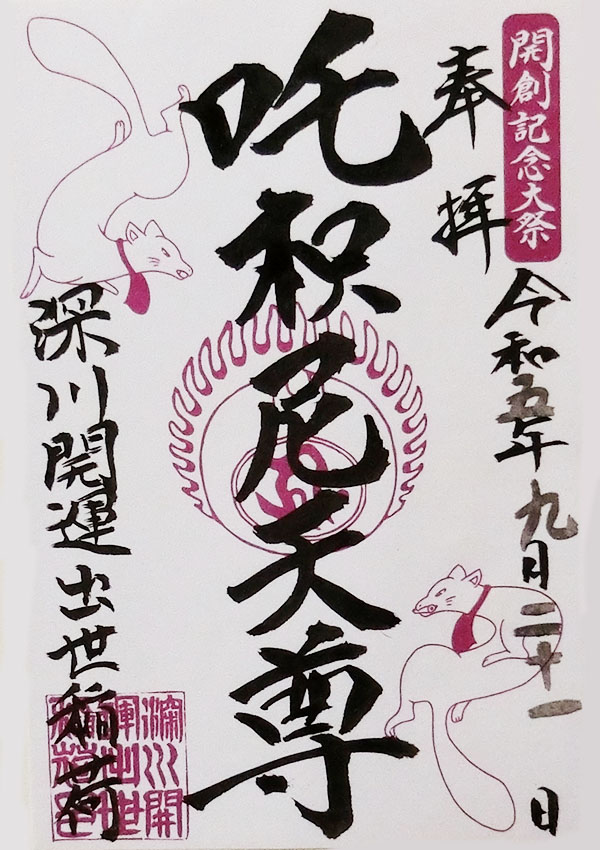 開創記念大祭
奉拝
令和五年九月二十一日
吒枳尼天尊
深川開運出世稲荷
深川開
運出世